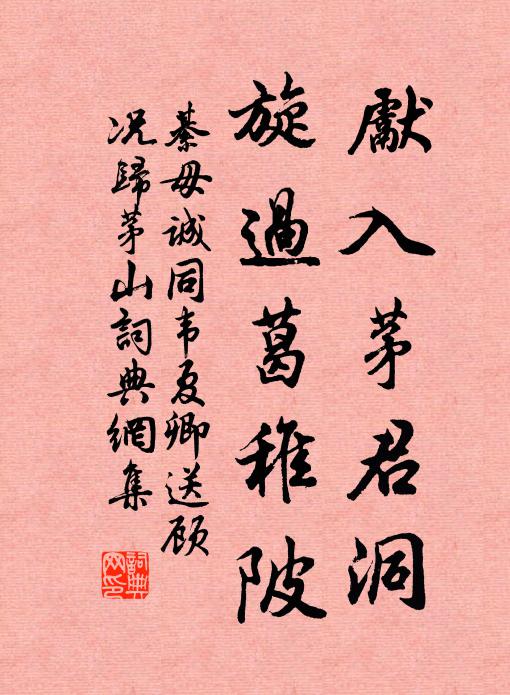 獻入茅君洞
旋過葛稚陂
綦毋诚同韦夏卿送顾
况歸茅山詞典網集
詞典
网印